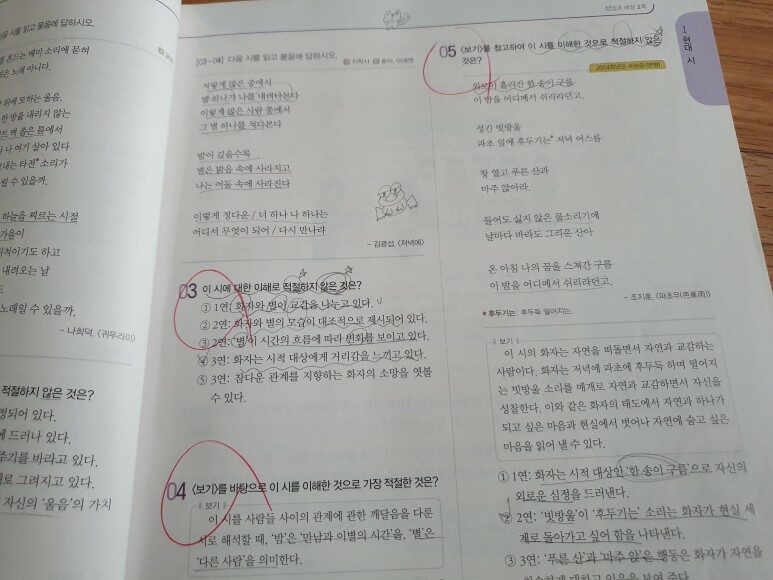 정답과 해설 2쪽
I 현대 시
음 시를 읽고 물음에 답하시오.
를 흔드는 매미 소리에 묻혀
직은 노래 아니다.
위에 토하는 울음,
한 방울 내리지 않는
드 벽 좁은 틈에서
나 여기 살아 있다
내는 타전* 소리가
릴 수 있을까.
하늘을 찌르는 시절
가을이
뒤척이기도 하고
내려오는 날
노래일 수 있을까.
– 나희덕, 〈귀뚜라미〉
적절하지 않은 것은?
정되어 있다.
에 드러나 있다.
주기를 바라고 있다.
로 그려지고 있다.
자신의 '울음'의 가치
[03~04] 다음 시를 읽고 물음에 답하시오.
지학사 동아, 미래엔
저렇게 많은 중에서
별 하나가 나를 내려다본다
이렇게 많은 사람 중에서
그 별 하나를 쳐다본다
밤이 깊을수록
별은 밝음 속에 사라지고
나는 어둠 속에 사라진다
이렇게 정다운 / 너 하나 나 하나는
어디서 무엇이 되어 / 다시 만나랴
– 김광섭, 〈저녁에〉
03 이 시에 대한 이해로 적절하지 않은 것은?
① 1연: 화자와 별이 교감을 나누고 있다.
② 2연: 화자와 별의 모습이 대조적으로 제시되어 있다.
③ 2연: '별'이 시간의 흐름에 따라 변화를 보이고 있다.
④ 3연: 화자는 시적 대상에게 거리감을 느끼고 있다.
⑤ 3연: 참다운 관계를 지향하는 화자의 소망을 엿볼
수 있다.
04 〈보기〉를 바탕으로 이 시를 이해한 것으로 가장 적절한 것은?
보기
이 시를 사람들 사이의 관계에 관한 깨달음을 다룬
시로 해석할 때, '밤'은 '만남과 이별의 시간'을, '별'은
'다른 사람'을 의미한다.
05 〈보기〉를 참고하여 이 시를 이해한 것으로 적절하지 않은
것은?
2014학년도 수능 B (변형)
외로이 흘러간 한 송이 구름
이 밤을 어디메서 쉬리라던고.
성긴 빗방울
파초 잎에 후두기는* 저녁 어스름
창 열고 푸른 산과
마주 앉아라.
들어도 싫지 않은 물소리기에
날마다 바라도 그리운 산아
온 아침 나의 꿈을 스쳐간 구름
이 밤을 어디메서 쉬리라던고.
– 조지훈, 〈파초우(芭蕉雨)〉
* 후두기는: 후두둑 떨어지는.
보기
이 시의 화자는 자연을 떠돌면서 자연과 교감하는
사람이다. 화자는 저녁에 파초에 후두둑 하며 떨어지
는 빗방울 소리를 매개로 자연과 교감하면서 자신을
성찰한다. 이와 같은 화자의 태도에서 자연과 하나가
되고 싶은 마음과 현실에서 벗어나 자연에 숨고 싶은
마음을 읽어 낼 수 있다.
① 1연: 화자는 시적 대상인 '한 송이 구름'으로 자신의
외로운 심정을 드러낸다.
② 2연: '빗방울'이 '후두기는' 소리는 화자가 현실 세
계로 돌아가고 싶어 함을 나타낸다.
③ 3연: '푸른 산'과 '마주 앉'은 행동은 화자가 자연을